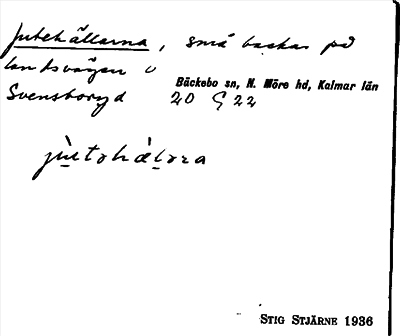 Jutehällarna, små backar på
landsvägen v
Bäckebo sn, N. Möre hd, Kalmar län
Svensboryd 20 G 22
STIG STJÄRNE 1936